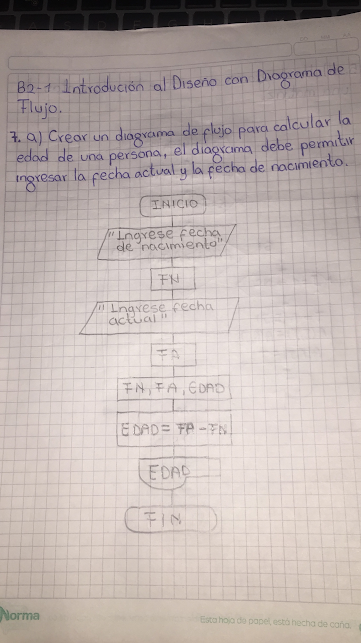 B2-1 Introducción al Diseño con Diagrama de
Flujo.
7. a) Crear un diagrama de flujo para calcular la
edad de una persona, el diagrama debe permitir
ingresar la fecha actual y la fecha de nacimiento.
INICIO
"Ingrese fecha
de nacimiento"
FN
"Ingrese fecha
actual"
FA
FN, FA, EDAD
EDAD = FA - FN
EDAD
FIN
Norma
Esta hoja de papel, está hecha de caña